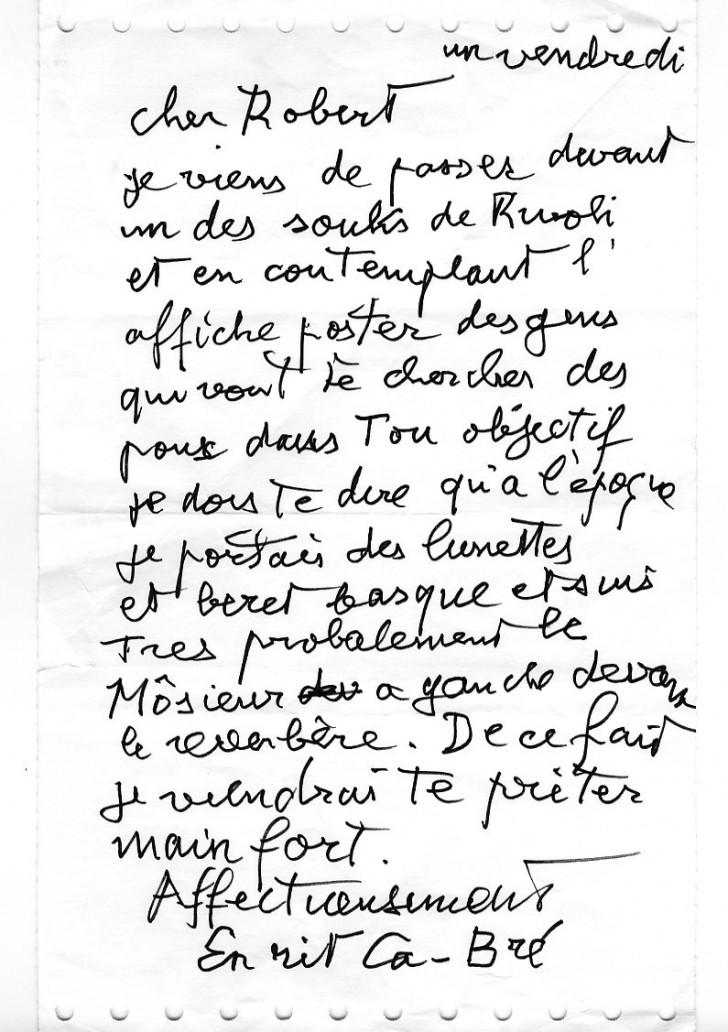 un vendredi
cher Robert
je viens de passer devant
un des souks de Rivoli
et en contemplant l'
affiche poster des gens
qui vont te chercher des
poux dans Ton objectif
je dois Te dire qu'a l'époque
je portais des lunettes
et beret basque et suis
Tres probalement le
Môsieur a gauche devant
le reverbère. De ce fait
je viendrai Te prêter
main fort.
Affectueusement
En rit Ca-Bré